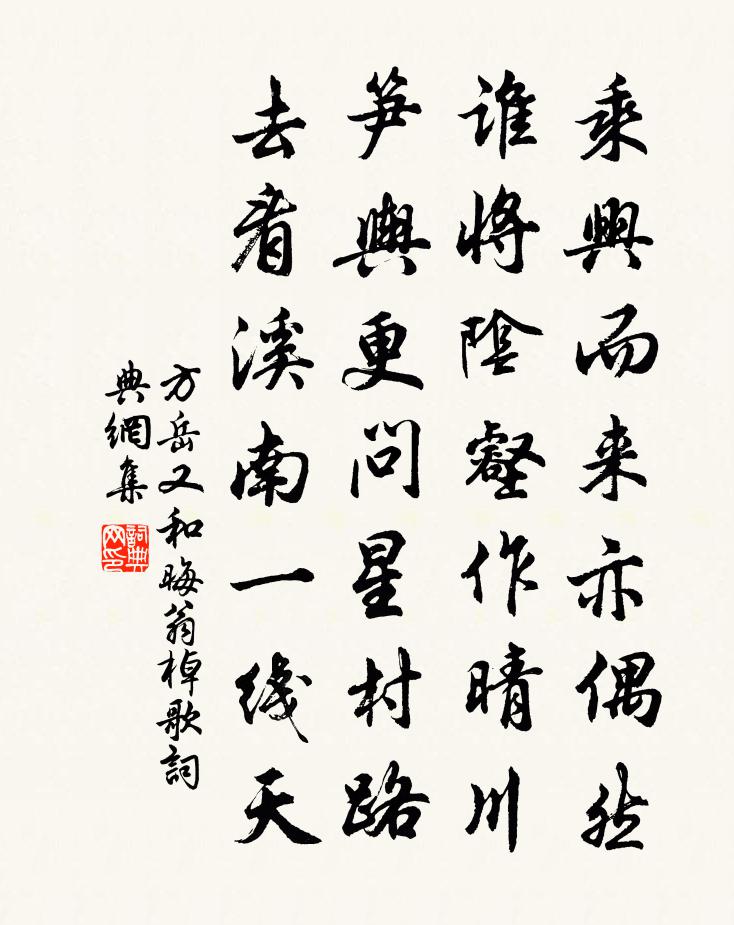 乘興而来亦偶然
誰將陰壑作晴川
笋輿更問星村路
去看溪南一綫天
方岳又和晦翁棹歌詞
典網集
詞典网印